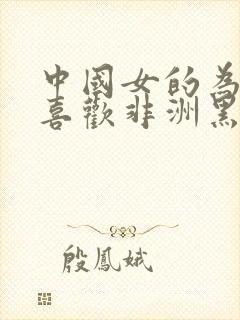 中國女的為
喜歡非洲黑
殷鳳娥